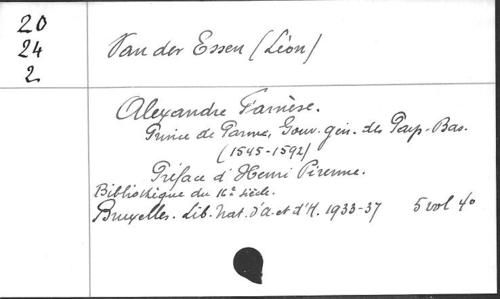 20
24
2
Van der Essen (Léon)
Alexandre Farnèse.
Prince de Parme, Gouv. gén. des Pays-Bas.
(1545-1592)
Préface d'Henri Pirenne.
Bibliothèque du 16e siècle.
Bruxelles. Lib. Nat. d'A. et d'H. 1933-37 5 vol 4o